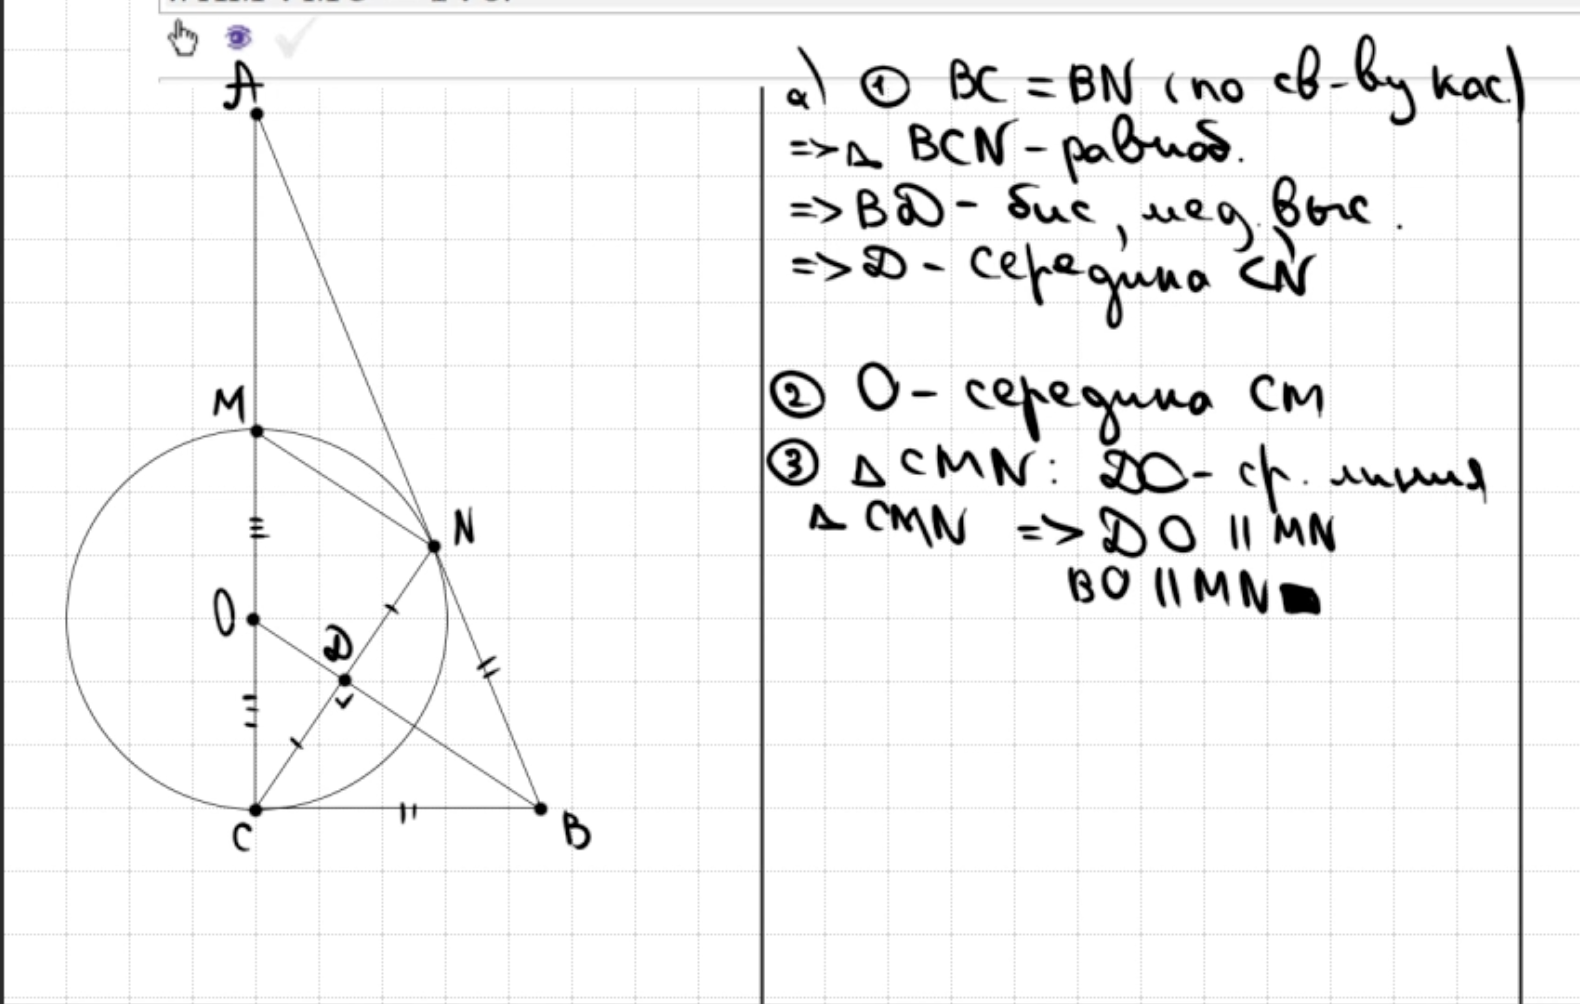 A
M
N
O
D
C
B
а) ① BC = BN (по св-ву кас.)
=> △ BCN - равноб.
=> BD - бис, мед, выс.
=> D - середина CN
② O - середина CM
③ △ CMN: DO - ср. линия
△ CMN => DO || MN
BO || MN